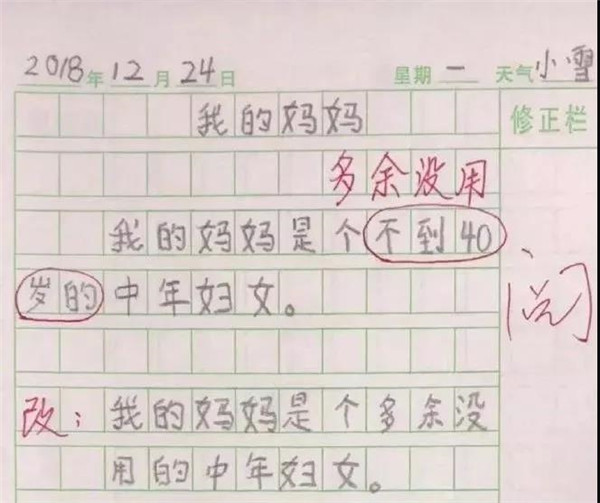 2018年12月24日 星期一 天气小雪
我的妈妈
修正栏
多余没用
我的妈妈是个不到40
岁的中年妇女。
阅
改:我的妈妈是个多余没
用的中年妇女。